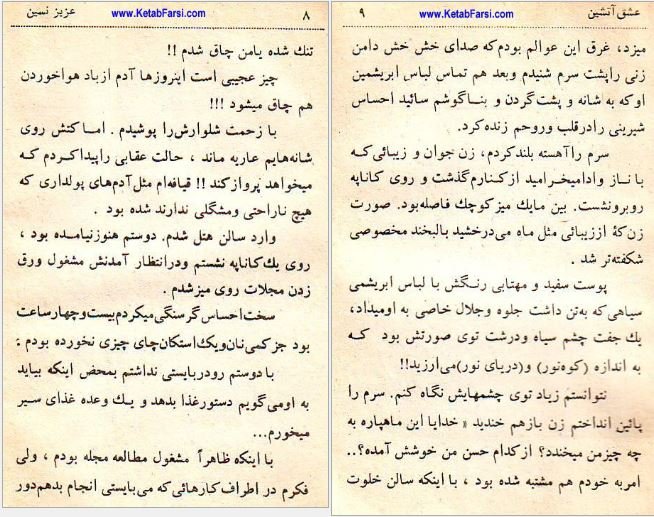 ۸ www.KetabFarsi.com عزیز نسین
تنك شده یامن چاق شدم !!
چیز عجیبی است اینروزها آدم ازباد هواخوردن
هم چاق میشود !!!
با زحمت شلوارش را پوشیدم . اما کتش روی
شانه‌هایم عاریه ماند ، حالت عقابی راپیدا کردم که
میخواهد پرواز کند !! قیافه‌ام مثل آدم‌های پولداری که
هیچ ناراحتی ومشگلی ندارند شده بود .
وارد سالن هتل شدم. دوستم هنوزنیامده بود ،
روی یك کاناپه نشستم ودرانتظار آمدنش مشغول ورق
زدن مجلات روی میزشدم .
سخت احساس گرسنگی میکردم بیست وچهارساعت
بود جز کمی نان ویك استکان چای چیزی نخورده بودم :
با دوستم رودربایستی نداشتم بمحض اینکه بیاید
به اومی‌گویم دستورغذا بدهد و یك وعده غذای سیر
میخورم...
با اینکه ظاهراً مشغول مطالعه مجله بودم ، ولی
فکرم در اطراف کارهائی که می‌بایستی انجام بدهم دور
عشق آتشین www.KetabFarsi.com ۹
میزد، غرق این عوالم بودم که صدای خش خش دامن
زنی راپشت سرم شنیدم وبعد هم تماس لباس ابریشمین
اوکه به شانه و پشت گردن و بناگوشم سائید احساس
شیرینی رادرقلب وروحم زنده کرد.
سرم راآهسته بلند کردم، زن جوان و زیبائی که
با ناز وادامیخرامید از کنارم گذشت و روی کاناپه
روبرونشست. بین مایك میز کوچك فاصله بود. صورت
زن که اززیبائی مثل ماه می‌درخشید بالبخند مخصوصی
شکفته‌تر شد .
پوست سفید و مهتابی رنگش با لباس ابریشمی
سیاهی که به‌تن داشت جلوه وجلال خاصی به اومیداد،
یك جفت چشم سیاه ودرشت توی صورتش بود که
به اندازه (کوه‌نور) و(دریای نور)می‌ارزید!!
نتوانستم زیاد توی چشمهایش نگاه کنم. سرم را
پائین انداختم زن بازهم خندید « خدایا این ماهپاره به
چه چیزمن میخندد؟ از کدام حسن من خوشش آمده؟..
امربه خودم هم مشتبه شده بود ، با اینکه سالن خلوت